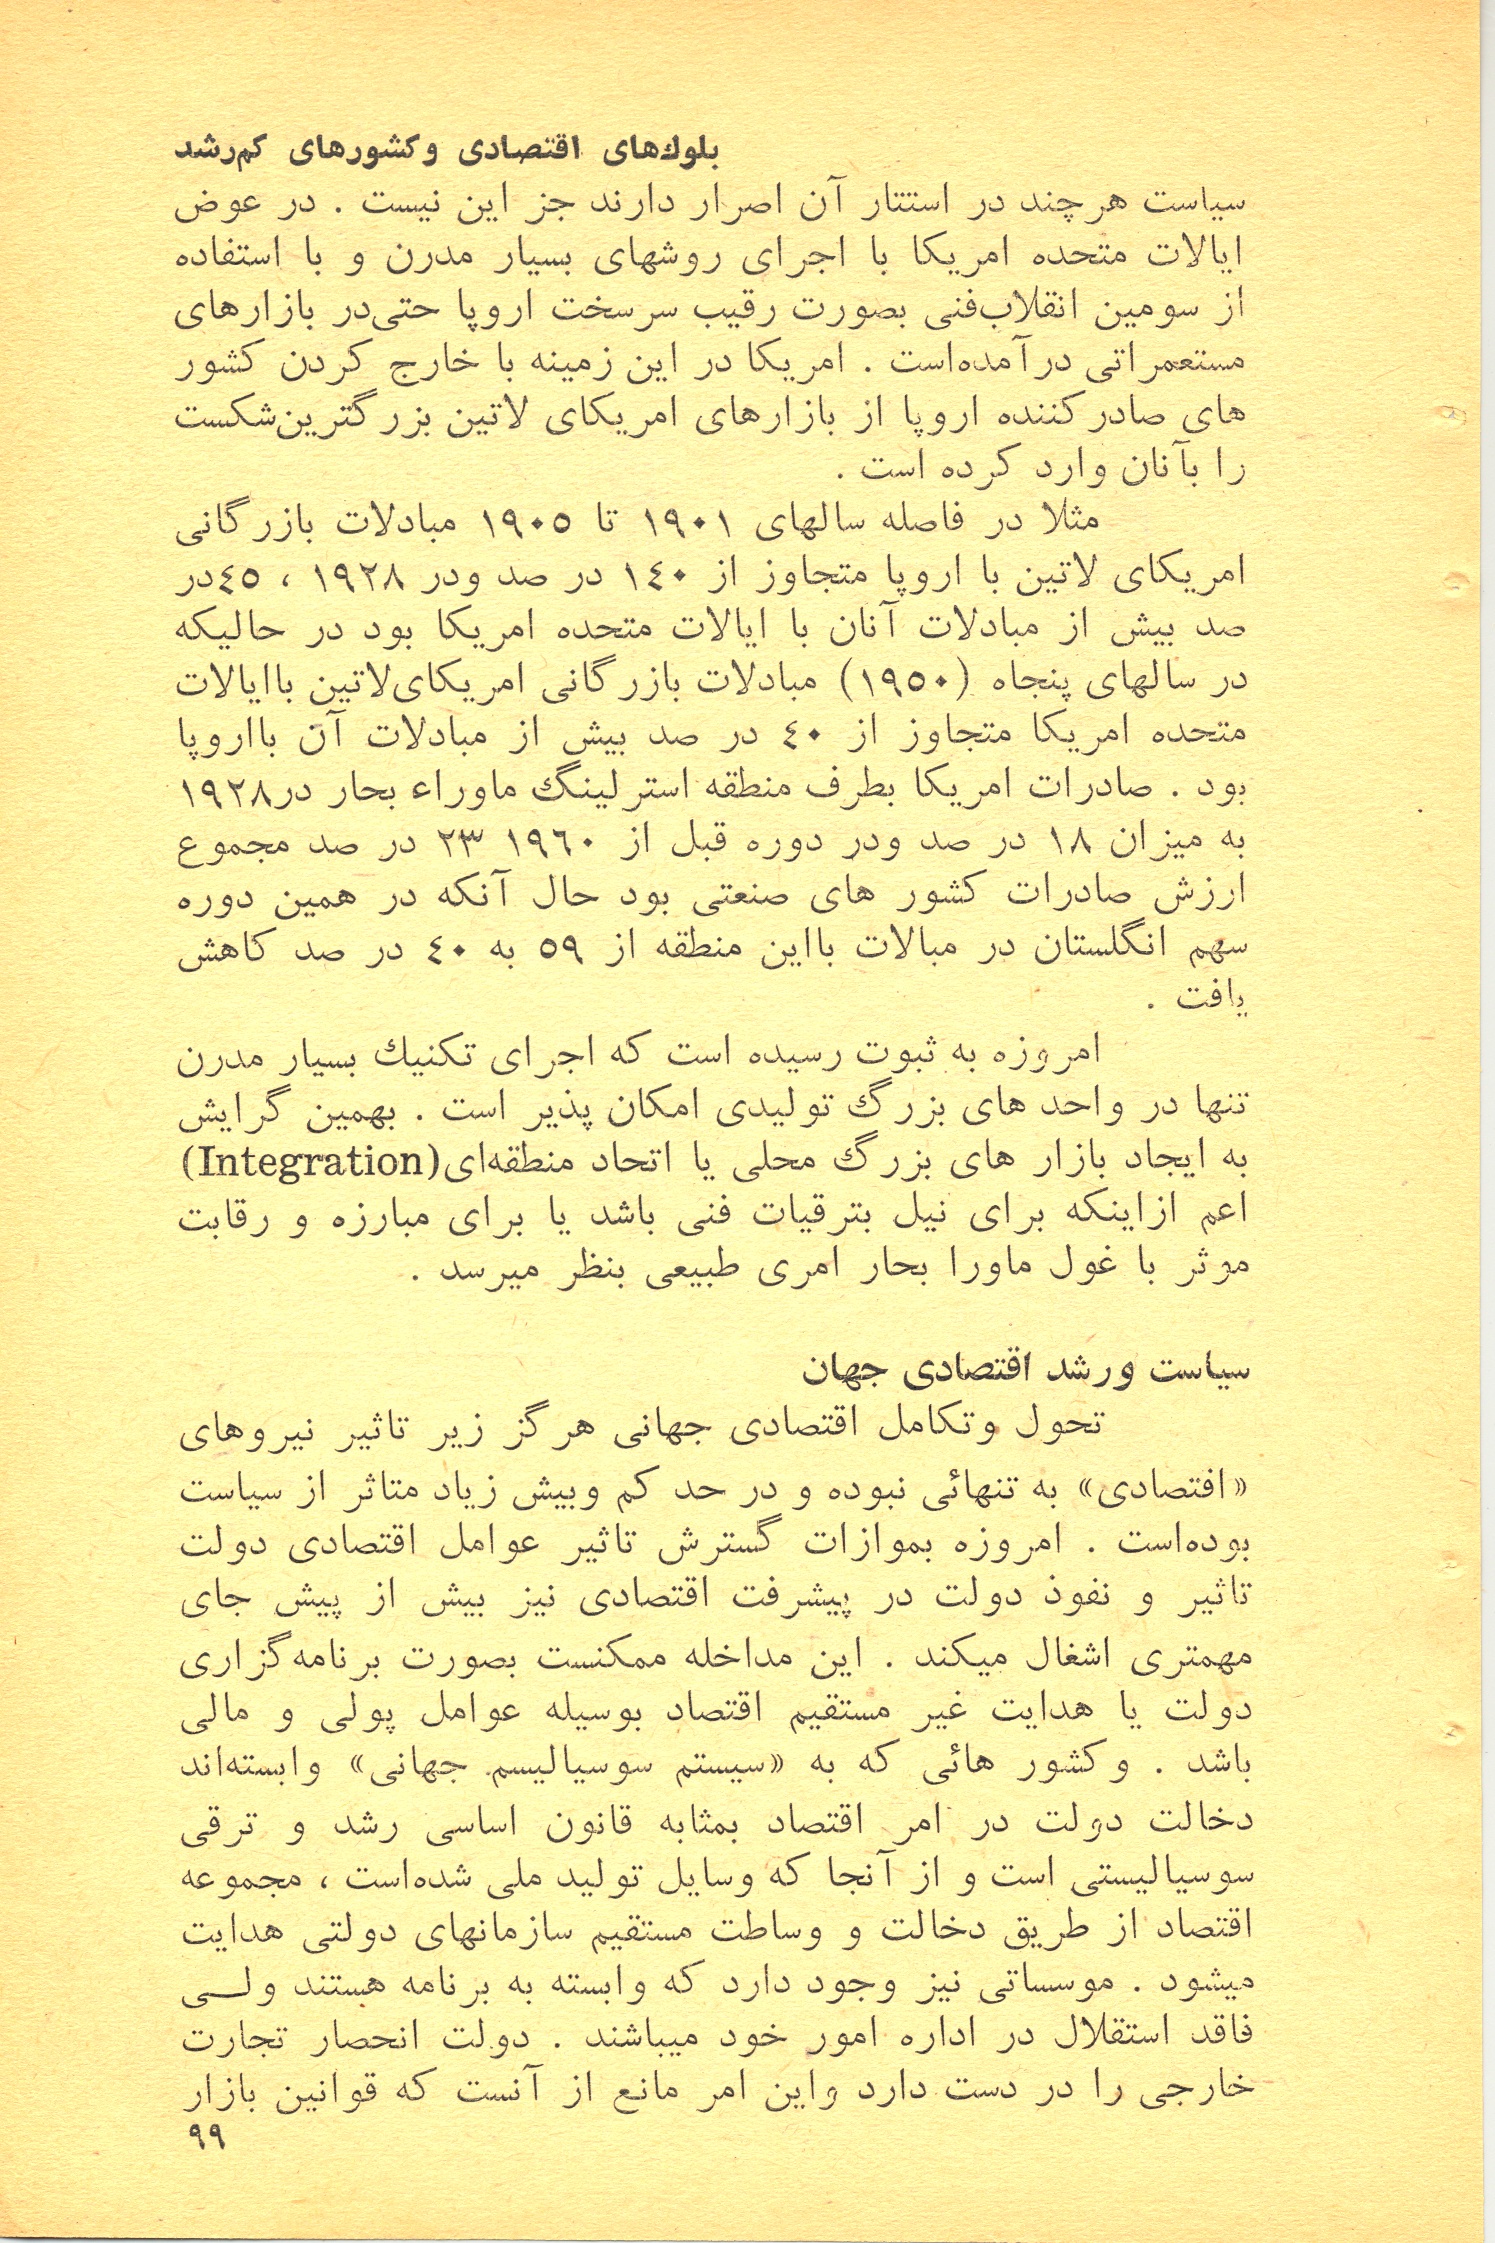 بلوك‌های اقتصادی وکشورهای کم‌رشد
سیاست هرچند در استتار آن اصرار دارند جز این نیست . در عوض
ایالات متحده امریکا با اجرای روشهای بسیار مدرن و با استفاده
از سومین انقلاب‌فنی بصورت رقیب سرسخت اروپا حتی‌در بازارهای
مستعمراتی درآمده‌است . امریکا در این زمینه با خارج کردن کشور
های صادرکننده اروپا از بازارهای امریکای لاتین بزرگترین‌شکست
را بآنان وارد کرده است .
مثلا در فاصله سالهای ١٩٠١ تا ١٩٠٥ مبادلات بازرگانی
امریکای لاتین با اروپا متجاوز از ١٤٠ در صد ودر ١٩٢٨ ، ٤٥در
صد بیش از مبادلات آنان با ایالات متحده امریکا بود در حالیکه
در سالهای پنجاه (١٩٥٠) مبادلات بازرگانی امریکای‌لاتین باایالات
متحده امریکا متجاوز از ٤٠ در صد بیش از مبادلات آن بااروپا
بود . صادرات امریکا بطرف منطقه استرلینگ ماوراء بحار در١٩٢٨
به میزان ١٨ در صد ودر دوره قبل از ١٩٦٠ ٢٣ در صد مجموع
ارزش صادرات کشور های صنعتی بود حال آنکه در همین دوره
سهم انگلستان در مبالات بااین منطقه از ٥٩ به ٤٠ در صد کاهش
یافت .
امروزه به ثبوت رسیده است که اجرای تکنیك بسیار مدرن
تنها در واحد های بزرگ تولیدی امکان پذیر است . بهمین گرایش
به ایجاد بازار های بزرگ محلی یا اتحاد منطقه‌ای(Integration)
اعم ازاینکه برای نیل بترقیات فنی باشد یا برای مبارزه و رقابت
موثر با غول ماورا بحار امری طبیعی بنظر میرسد .
سیاست ورشد اقتصادی جهان
تحول وتکامل اقتصادی جهانی هرگز زیر تاثیر نیروهای
«افتصادی» به تنهائی نبوده و در حد کم وبیش زیاد متاثر از سیاست
بوده‌است . امروزه بموازات گسترش تاثیر عوامل اقتصادی دولت
تاثیر و نفوذ دولت در پیشرفت اقتصادی نیز بیش از پیش جای
مهمتری اشغال میکند . این مداخله ممکنست بصورت برنامه‌گزاری
دولت یا هدایت غیر مستقیم اقتصاد بوسیله عوامل پولی و مالی
باشد . وکشور هائی که به «سیستم سوسیالیسم جهانی» وابسته‌اند
دخالت دولت در امر اقتصاد بمثابه قانون اساسی رشد و ترقی
سوسیالیستی است و از آنجا که وسایل تولید ملی شده‌است ، مجموعه
اقتصاد از طریق دخالت و وساطت مستقیم سازمانهای دولتی هدایت
میشود . موسساتی نیز وجود دارد که وابسته به برنامه هستند ولـــی
فاقد استقلال در اداره امور خود میباشند . دولت انحصار تجارت
خارجی را در دست دارد واین امر مانع از آنست که قوانین بازار
٩٩